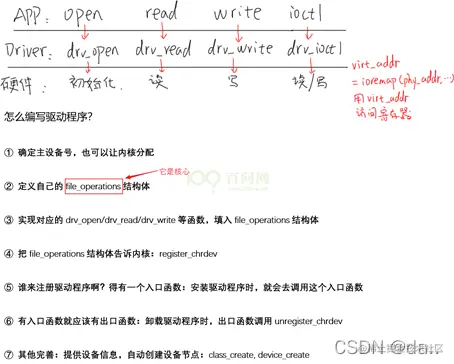 APP: open read write ioctl
Driver: drv_open drv_read drv_write drv_ioctl
硬件: 初始化 读 写 读/写
virt_addr
= ioremap(phy_addr, ...)
用 virt_addr
访问寄存器
怎么编写驱动程序?
① 确定主设备号,也可以让内核分配
它是核心
② 定义自己的 file_operations 结构体
百问网
③ 实现对应的 drv_open/drv_read/drv_write 等函数,填入 file_operations 结构体
④ 把 file_operations 结构体告诉内核:register_chrdev
⑤ 谁来注册驱动程序啊?得有一个入口函数:安装驱动程序时,就会去调用这个入口函数
⑥ 有入口函数就应该有出口函数:卸载驱动程序时,出口函数调用 unregister_chrdev
⑦ 其他完善:提供设备信息,自动创建设备节点:class_create, device_create